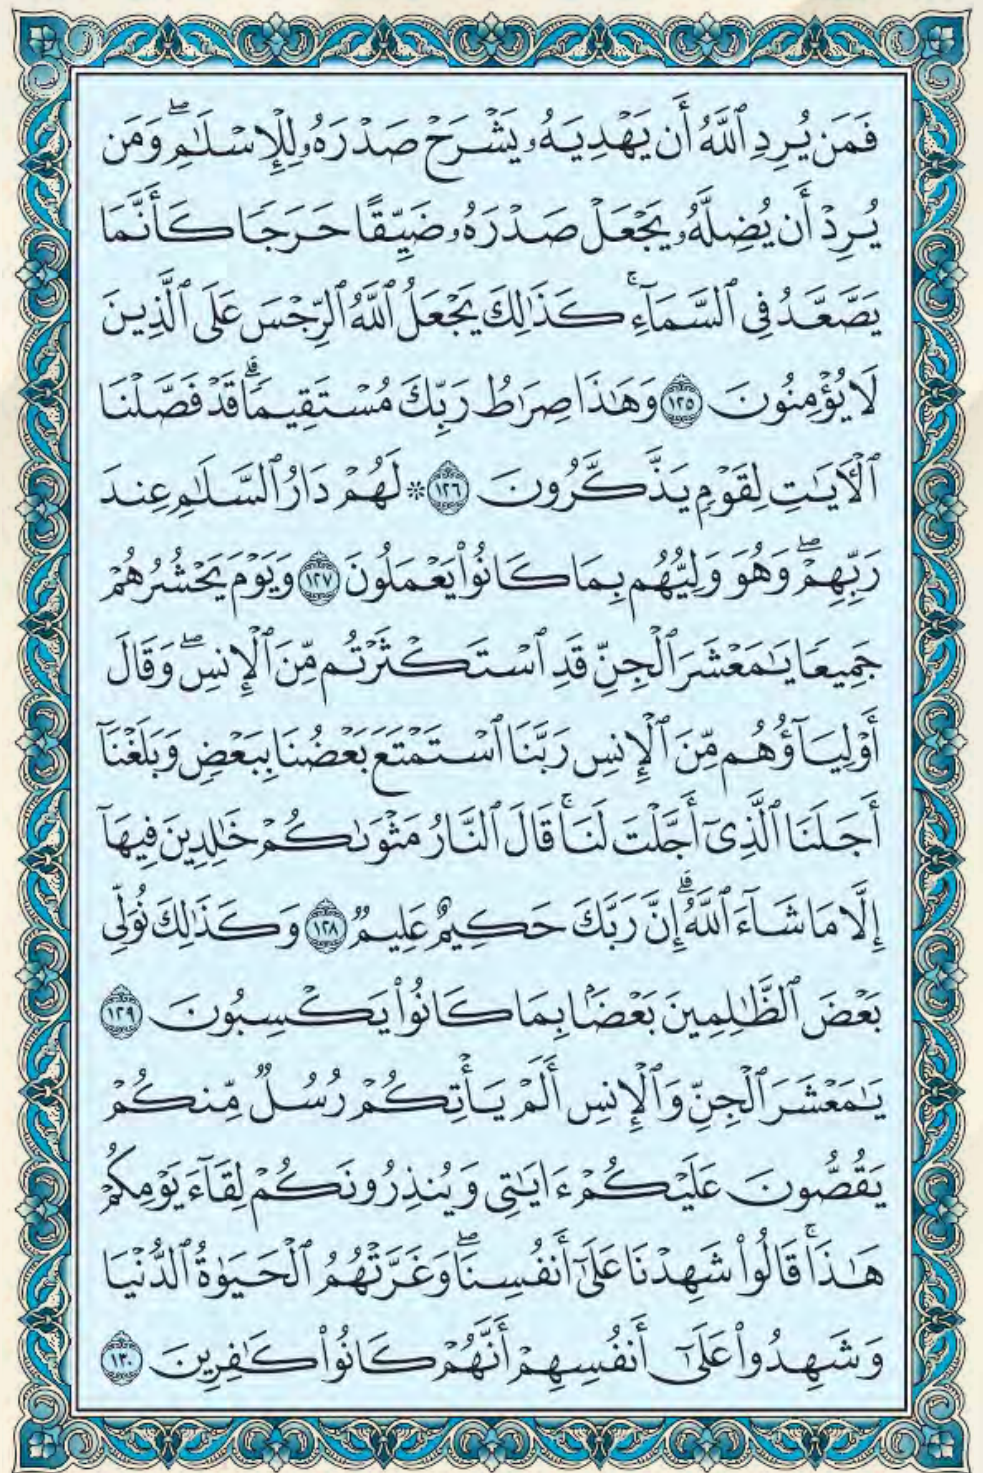 فَمَن يُرِدِ ٱللَّهُ أَن يَهْدِيَهُۥ يَشْرَحْ صَدْرَهُۥ لِلْإِسْلَٰمِۖ وَمَن
يُرِدْ أَن يُضِلَّهُۥ يَجْعَلْ صَدْرَهُۥ ضَيِّقًا حَرَجًا كَأَنَّمَا
يَصَّعَّدُ فِى ٱلسَّمَآءِۚ كَذَٰلِكَ يَجْعَلُ ٱللَّهُ ٱلرِّجْسَ عَلَى ٱلَّذِينَ
لَا يُؤْمِنُونَ ١٢٥ وَهَٰذَا صِرَٰطُ رَبِّكَ مُسْتَقِيمًاۗ قَدْ فَصَّلْنَا
ٱلْءَايَٰتِ لِقَوْمٍ يَذَّكَّرُونَ ١٢٦ * لَهُمْ دَارُ ٱلسَّلَٰمِ عِندَ
رَبِّهِمْۖ وَهُوَ وَلِيُّهُم بِمَا كَانُوا۟ يَعْمَلُونَ ١٢٧ وَيَوْمَ يَحْشُرُهُمْ
جَمِيعًا يَٰمَعْشَرَ ٱلْجِنِّ قَدِ ٱسْتَكْثَرْتُم مِّنَ ٱلْإِنسِۖ وَقَالَ
أَوْلِيَآؤُهُم مِّنَ ٱلْإِنسِ رَبَّنَا ٱسْتَمْتَعَ بَعْضُنَا بِبَعْضٍ وَبَلَغْنَآ
أَجَلَنَا ٱلَّذِىٓ أَجَّلْتَ لَنَاۚ قَالَ ٱلنَّارُ مَثْوَىٰكُمْ خَٰلِدِينَ فِيهَآ
إِلَّا مَا شَآءَ ٱللَّهُۗ إِنَّ رَبَّكَ حَكِيمٌ عَلِيمٌ ١٢٨ وَكَذَٰلِكَ نُوَلِّى
بَعْضَ ٱلظَّٰلِمِينَ بَعْضًۢا بِمَا كَانُوا۟ يَكْسِبُونَ ١٢٩
يَٰمَعْشَرَ ٱلْجِنِّ وَٱلْإِنسِ أَلَمْ يَأْتِكُمْ رُسُلٌ مِّنكُمْ
يَقُصُّونَ عَلَيْكُمْ ءَايَٰتِى وَيُنذِرُونَكُمْ لِقَآءَ يَوْمِكُمْ
هَٰذَاۚ قَالُوا۟ شَهِدْنَا عَلَىٰٓ أَنفُسِنَاۖ وَغَرَّتْهُمُ ٱلْحَيَوٰةُ ٱلدُّنْيَا
وَشَهِدُوا۟ عَلَىٰٓ أَنفُسِهِمْ أَنَّهُمْ كَانُوا۟ كَٰفِرِينَ ١٣٠